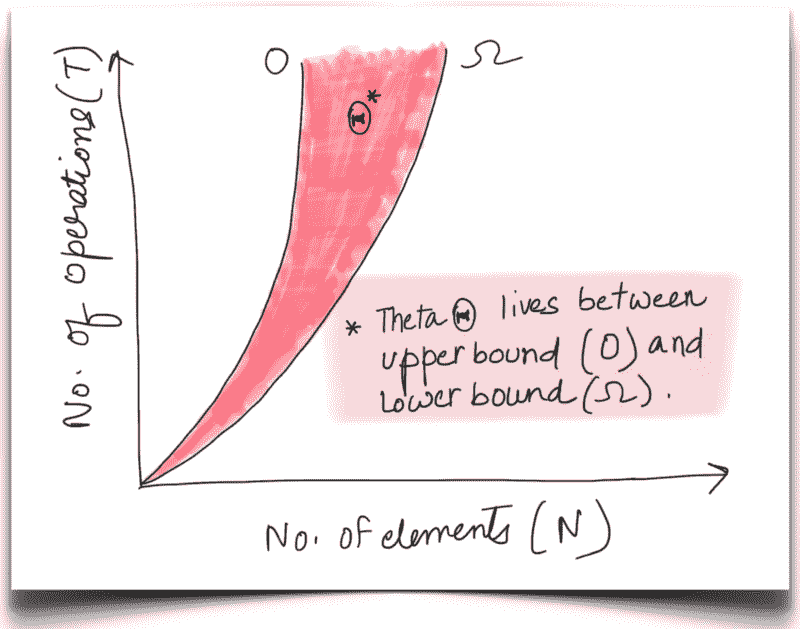 O
Ω
Θ*
No. of operations (T)
* Theta Θ lives between
upper bound (O) and
lower bound (Ω).
No. of elements (N)